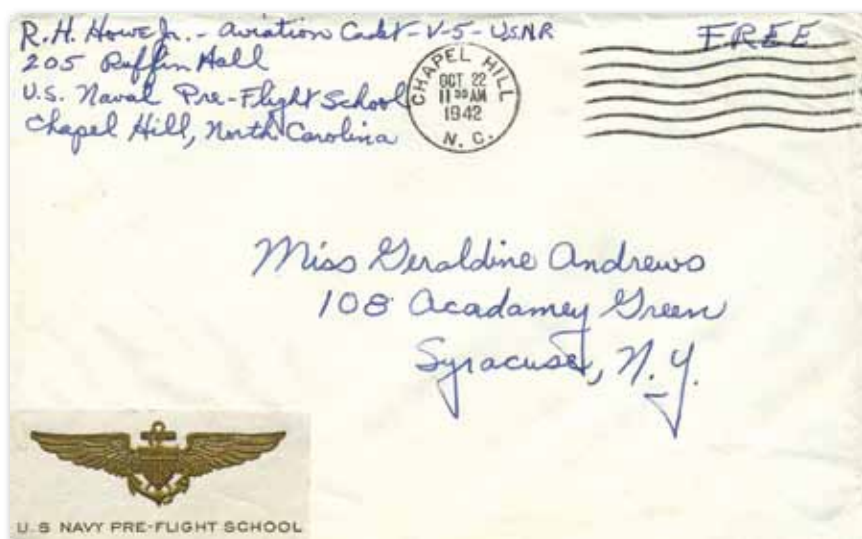 R. H. Howe Jr. - Aviation Cadet - V-5 - USNR
205 Ruffin Hall
U.S. Naval Pre-Flight School
Chapel Hill, North Carolina
CHAPEL HILL
OCT. 22
11 30 AM
1942
N. C.
FREE
Miss Geraldine Andrews
108 Acadamey Green
Syracuse, N.Y.
U.S NAVY PRE-FLIGHT SCHOOL